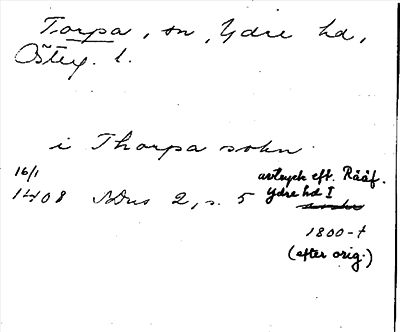 Torpa, sn, Ydre hd,
Östg. l.
i Thorpa sokn
16/1
1408 SDns 2, s. 5
avtryck eft. Rääf.
Ydre hd I
1800-t
(efter orig.)